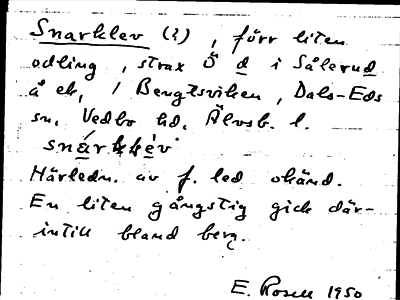 Snarklev (?), förr liten
odling, strax Ö d i Sålerud
å ek, i Bengtsviken, Dals-Eds
sn, Vedbo hd. Älvsb. l.
Härledn. av f. led okänd.
En liten gångstig gick där-
intill bland berg.
E. Rosell 1950